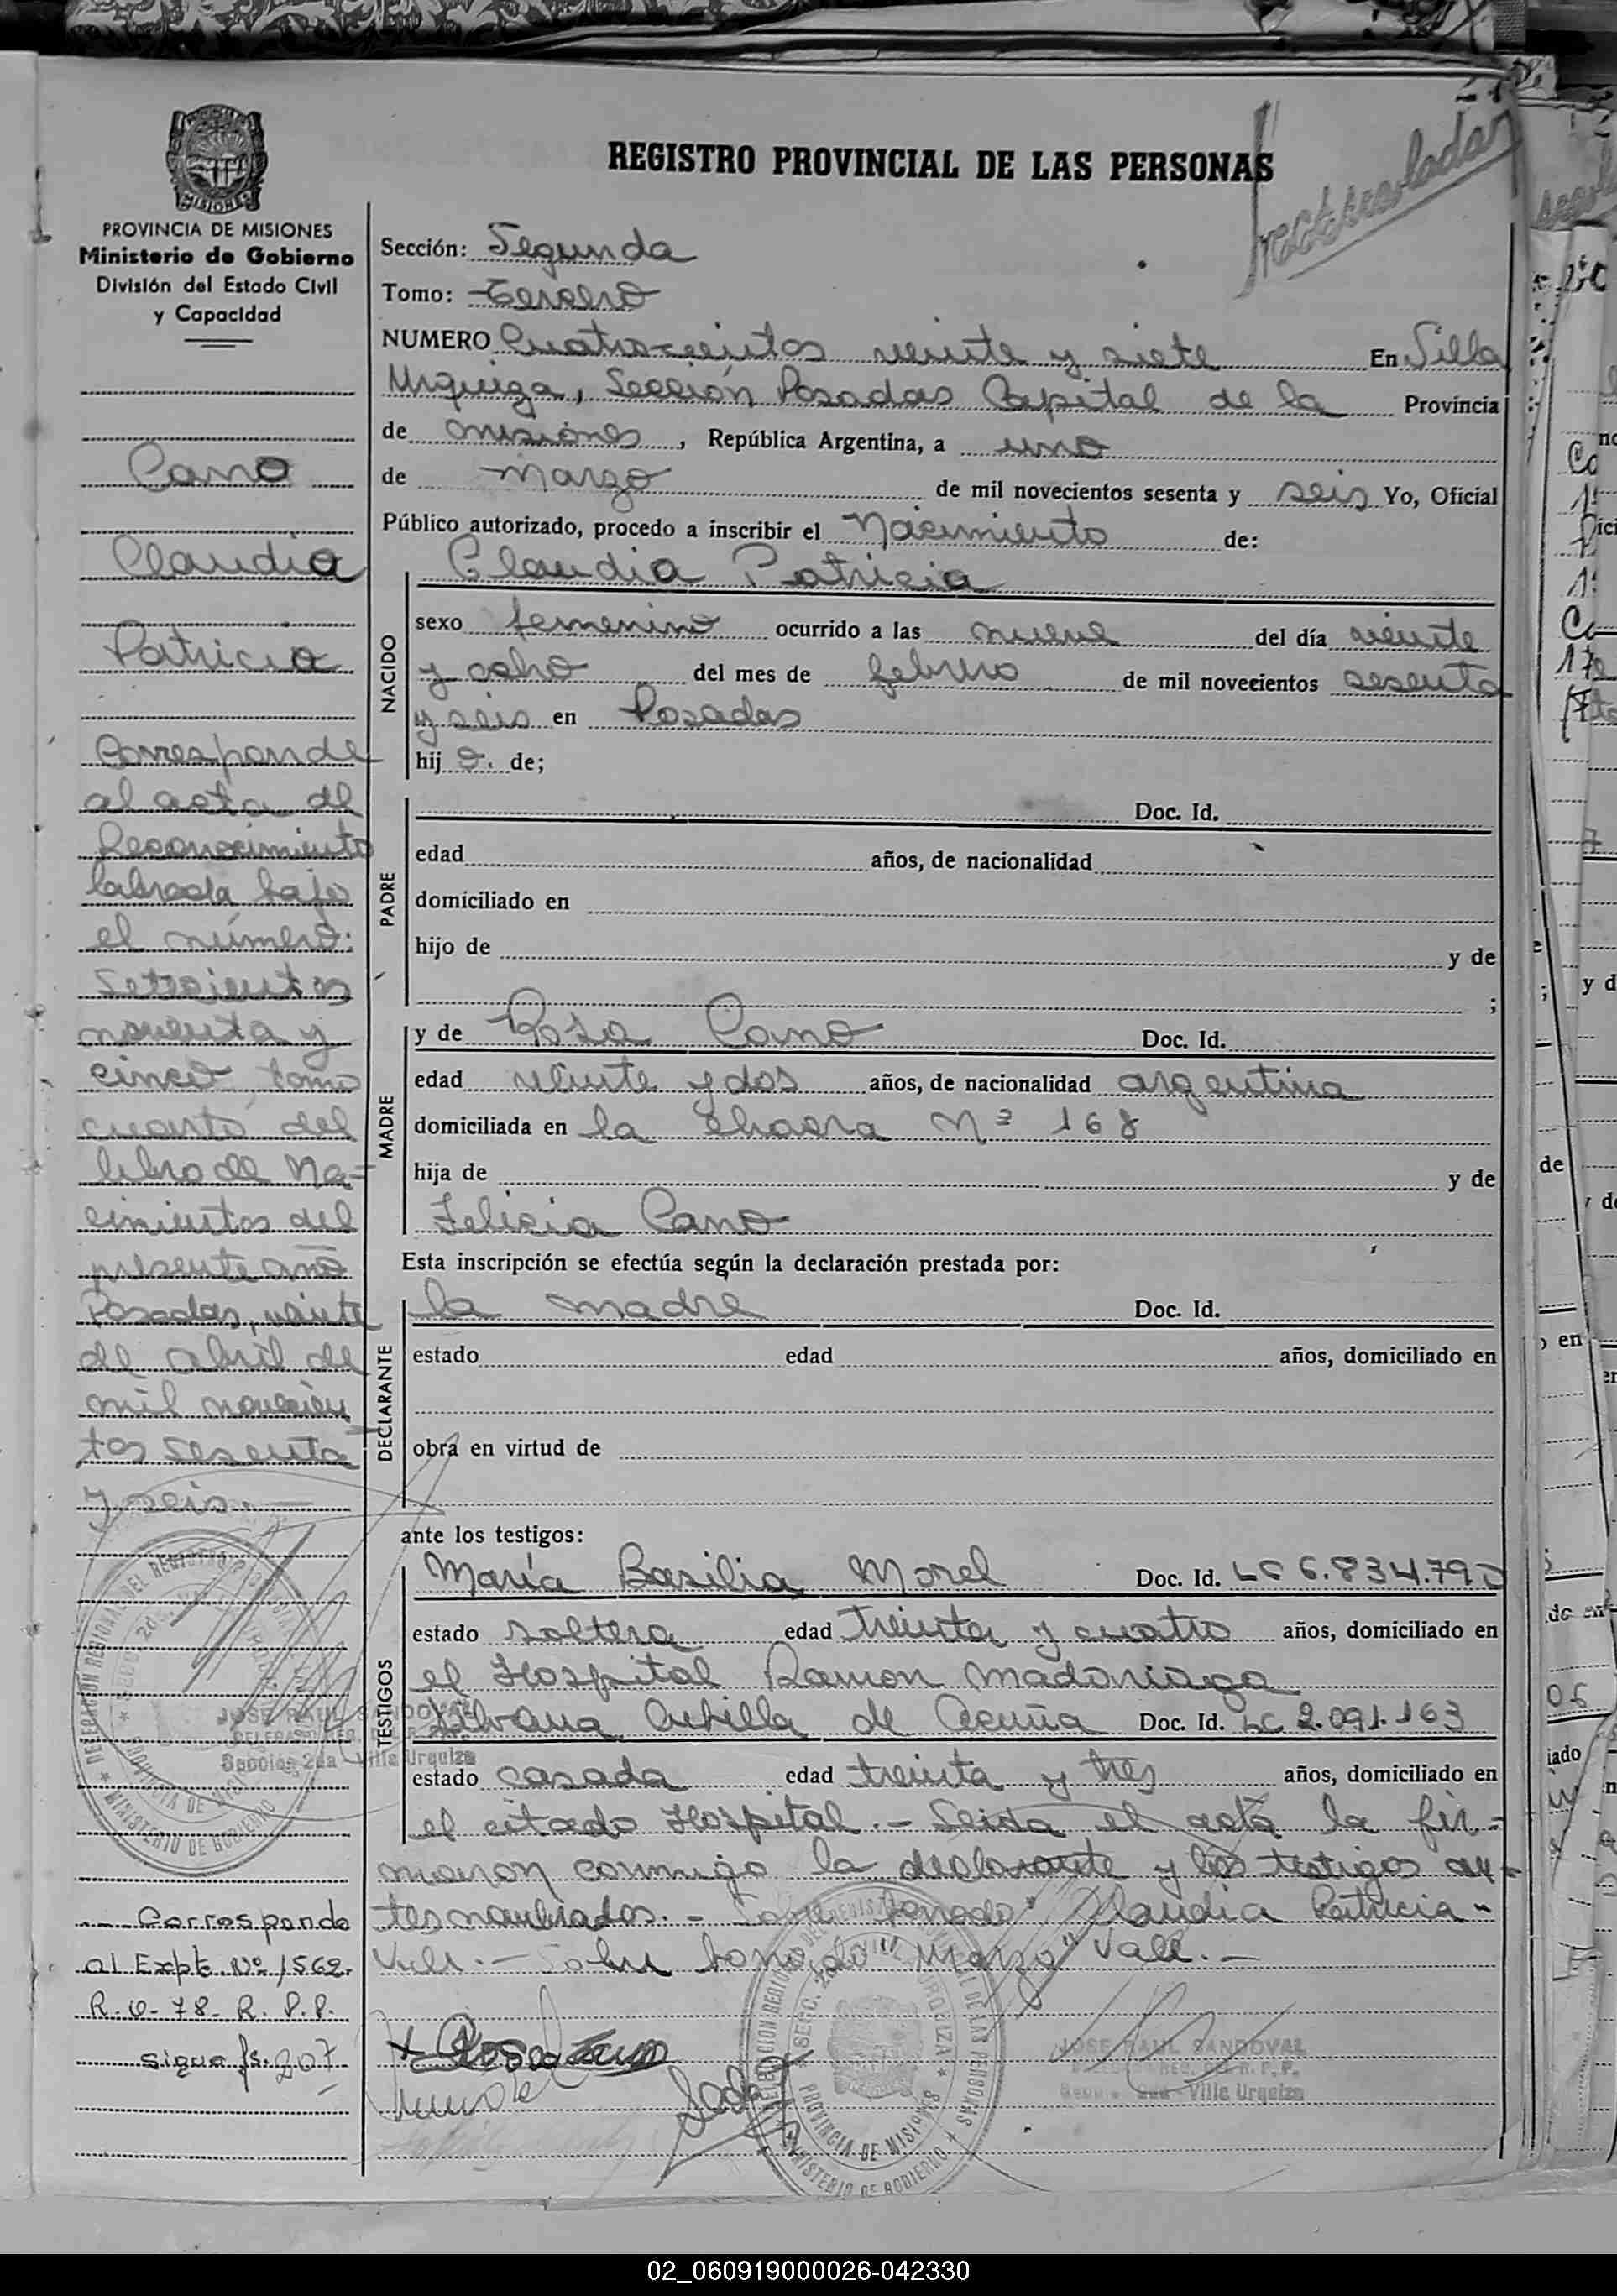 REGISTRO PROVINCIAL DE LAS PERSONAS
MISIONES
PROVINCIA DE MISIONES
Ministerio de Gobierno
División del Estado Civil
y Capacidad
Cano
Claudia
Patricia
Corresponde
al acta de
Reconocimiento
labrada bajo
el número:
Setecientos
noventa y
cinco tomo
cuarto del
libro de Na=
cimientos del
presente año
Posadas, veinte
de abril de
mil novecien
tos sesenta
y seis.—
JOSE RAUL SANDOVAL
Sección 2da - Villa Urquiza
Corresponde
al Expte Nº 1562.
R.O-78-R.P.P.
sigue fs. 207
Sección: Segunda
Tomo: Tercero
NUMERO Cuatrocientos veinte y siete En Villa
Urquiza, Sección Posadas Capital de la Provincia
de Misiones, República Argentina, a uno
de Marzo de mil novecientos sesenta y seis Yo, Oficial
Público autorizado, procedo a inscribir el Nacimiento de:
NACIDO
Claudia Patricia
sexo femenino ocurrido a las nueve del día veinte
y ocho del mes de febrero de mil novecientos sesenta
y seis en Posadas
hij a. de;
PADRE
Doc. Id.
edad años, de nacionalidad
domiciliado en
hijo de y de
;
MADRE
y de Rosa Cano Doc. Id.
edad veinte y dos años, de nacionalidad argentina
domiciliada en la Chacra Nº 168
hija de y de
Felicia Cano
Esta inscripción se efectúa según la declaración prestada por:
DECLARANTE
la madre Doc. Id.
estado edad años, domiciliado en
obra en virtud de
ante los testigos:
TESTIGOS
María Basilia Morel Doc. Id. LC 6.834.790
estado soltera edad treinta y cuatro años, domiciliado en
el Hospital Ramon Madariaga
de Acuña Doc. Id. LC 2.091.163
estado casada edad treinta y tres años, domiciliado en
el citado Hospital.- Leida el acta la fir-
maron conmigo la declarante y los testigos an-
tesnombrados.- Sobre borrado "Claudia Patricia"
Vale.- Sobre borrado "Marzo" Vale.-
Rosa Cano
JOSE RAUL SANDOVAL
Villa Urquiza
PROVINCIA DE MISIONES
MINISTERIO DE GOBIERNO
02_060919000026-042330